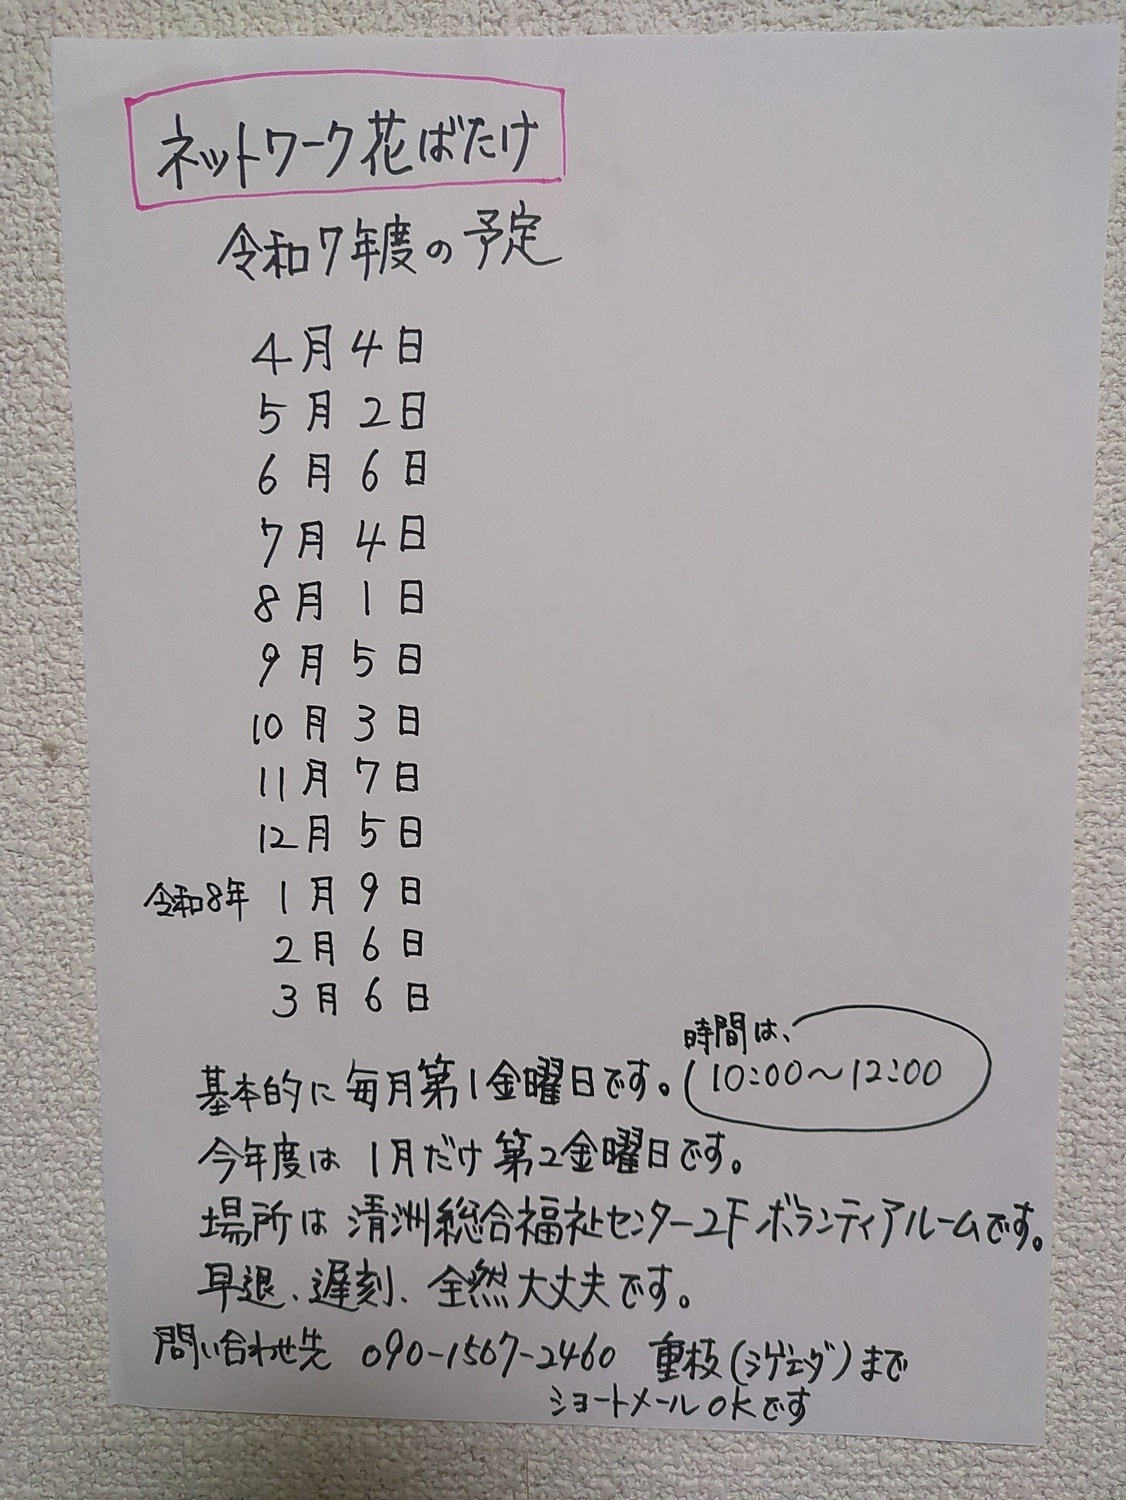 ネットワーク花ばたけ
令和7年度の予定
4月4日
5月2日
6月6日
7月4日
8月1日
9月5日
10月3日
11月7日
12月5日
令和8年 1月9日
2月6日
3月6日
時間は、
基本的に毎月第1金曜日です。 10:00～12:00
今年度は1月だけ第2金曜日です。
場所は清洲総合福祉センター2Fボランティアルームです。
早退、遅刻、全然大丈夫です。
問い合わせ先 090-1567-2460 重枝(シゲエダ)まで
ショートメールOKです